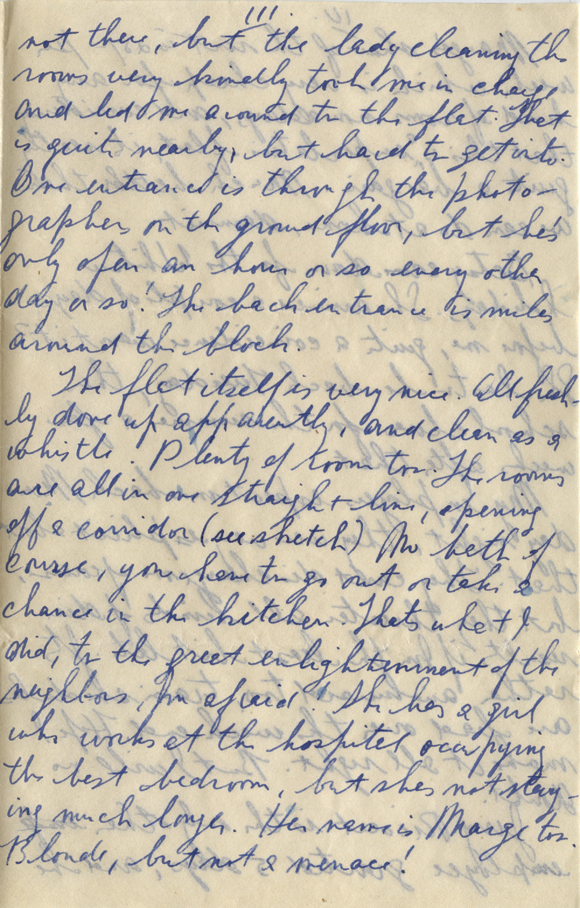 III
not there, but the lady cleaning the
rooms very kindly took me in charge
and led me around to the flat. That
is quite nearby, but hard to get into.
One entrance is through the photo-
graphers on the ground floor, but he's
only open an hour or so every other
day or so! The back entrance is miles
around the block.
The flat itself is very nice. All fresh-
ly done up apparently, and clean as a
whistle. Plenty of room too. The rooms
are all in one straight line, opening
off a corridor (see sketch) No bath of
course, you have to go out or take a
chance in the kitchen. Thats what I
did, to the great enlightenment of the
neighbors, I'm afraid! She has a girl
who works at the hospital occupying
the best bedroom, but shes not stay-
ing much longer. Her name is Marge too.
Blonde, but not a menace!